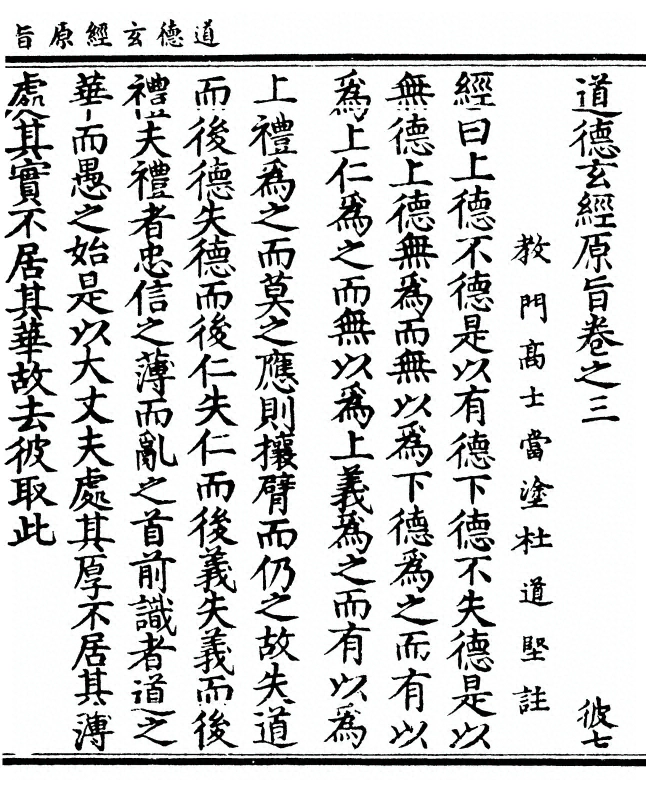 道德玄經原旨
道德玄經原旨卷之三
彼七
教門高士當塗杜道堅註
經曰上德不德是以有德下德不失德是以
無德上德無為而無以為下德為之而有以
為上仁為之而無以為上義為之而有以為
上禮為之而莫之應則攘臂而仍之故失道
而後德失德而後仁失仁而後義失義而後
禮夫禮者忠信之薄而亂之首前識者道之
華而愚之始是以大丈夫處其厚不居其薄
處其實不居其華故去彼取此